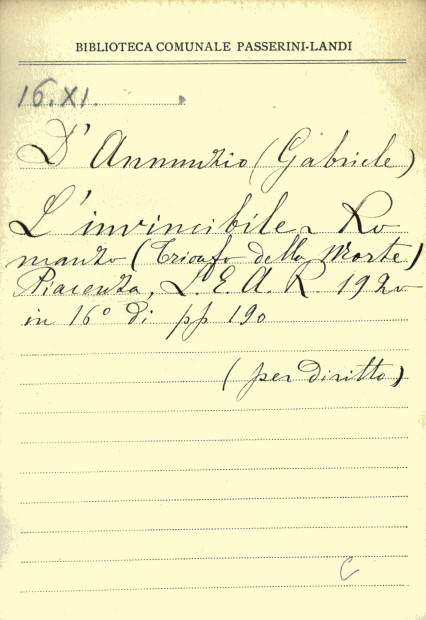 BIBLIOTECA COMUNALE PASSERINI-LANDI
16.XI.
D'Annunzio (Gabriele)
L'invincibile. Ro
manzo (Trionfo della Morte)
Piacenza, L. E. A. R. 1920
in 16° di pp 190
(per diritto)
C